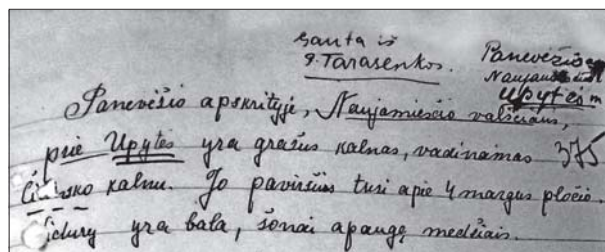 gauta iš
P. Tarasenkos.
Panevėžio
Naujam
Upytės m
Panevėžio apskrityje, Naujamiesčio valsčiaus,
prie Upytės yra gražus kalnas, vadinamas 375
Čičinsko kalnu. Jo paviršius turi apie 4 margus pločio.
Vidury yra bala, šonai apaugę medžiais.